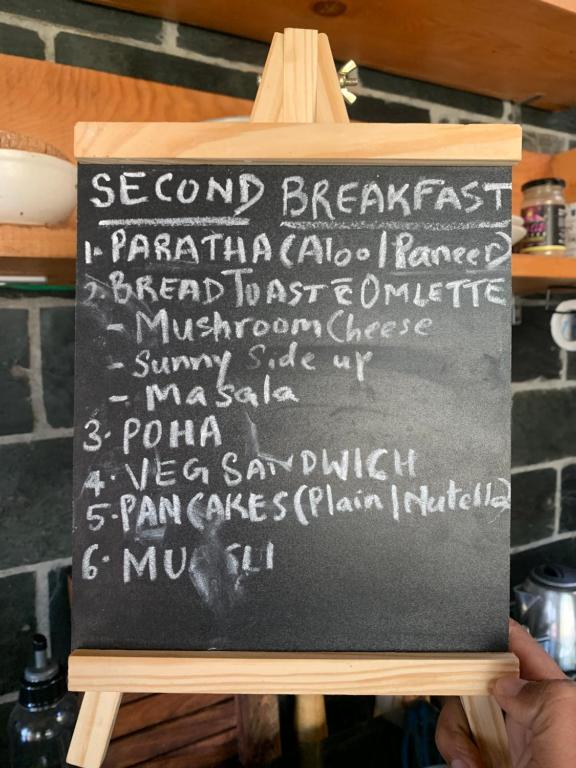 SECOND BREAKFAST
1. PARATHA (Aloo | Paneer)
2. BREAD TOAST c̄ OMLETTE
- Mushroom Cheese
- Sunny Side up
- Masala
3. POHA
4. VEG SANDWICH
5. PANCAKES (Plain | Nutella)
6.